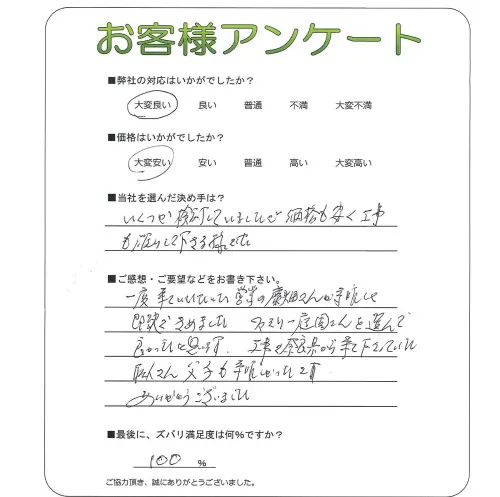 お客様アンケート
■弊社の対応はいかがでしたか？
大変良い 良い 普通 不満 大変不満
■価格はいかがでしたか？
大変安い 安い 普通 高い 大変高い
■当社を選んだ決め手は？
いくつか検討していましたが 価格も安く 工事
して下さる様でした
■ご感想・ご要望などをお書き下さい。
一度来ていただいた営業の さんが
即決できめました 庭園さんを選んで
良かったと思います. 工事も奈良県から来て下さっていた
職人さん 父子も
ありがとうございました
■最後に、ズバリ満足度は何%ですか？
100 %
ご協力頂き、誠にありがとうございました。